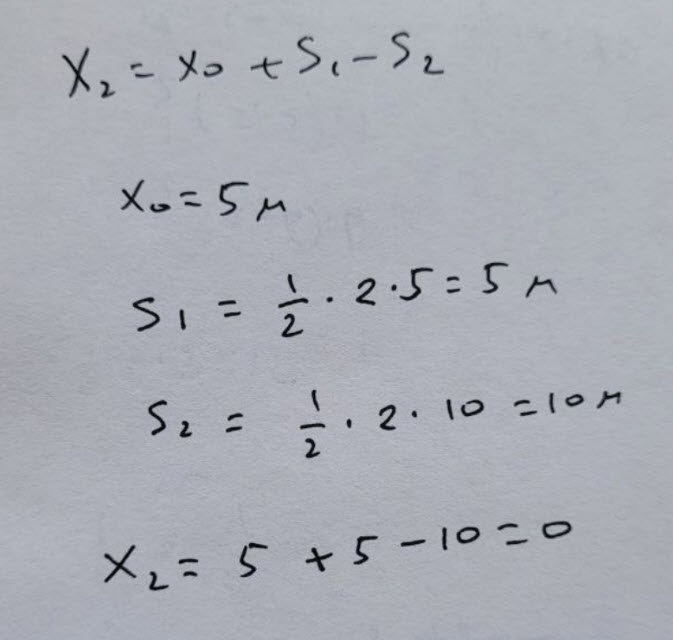 X₂ = x₀ + S₁ - S₂
x₀ = 5 м
S₁ = 1/2 · 2 · 5 = 5 м
S₂ = 1/2 · 2 · 10 = 10 м
X₂ = 5 + 5 - 10 = 0